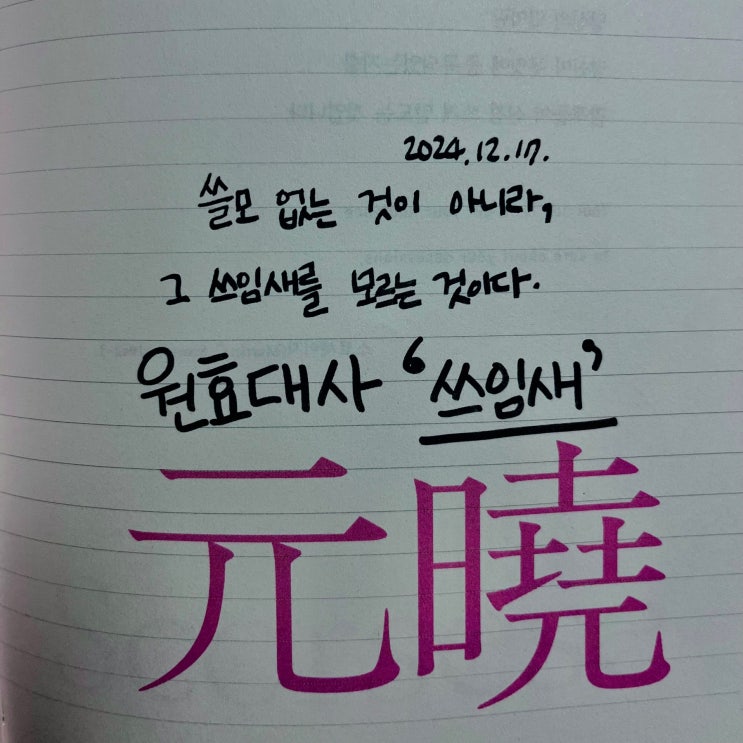 2024.12.17.
쓸모 없는 것이 아니라,
그 쓰임새를 모르는 것이다.
원효대사 ‘쓰임새’
元曉